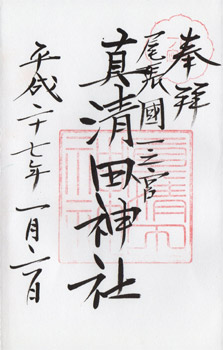 奉拝
尾張國一之宮
真清田神社
平成二十七年一月二日